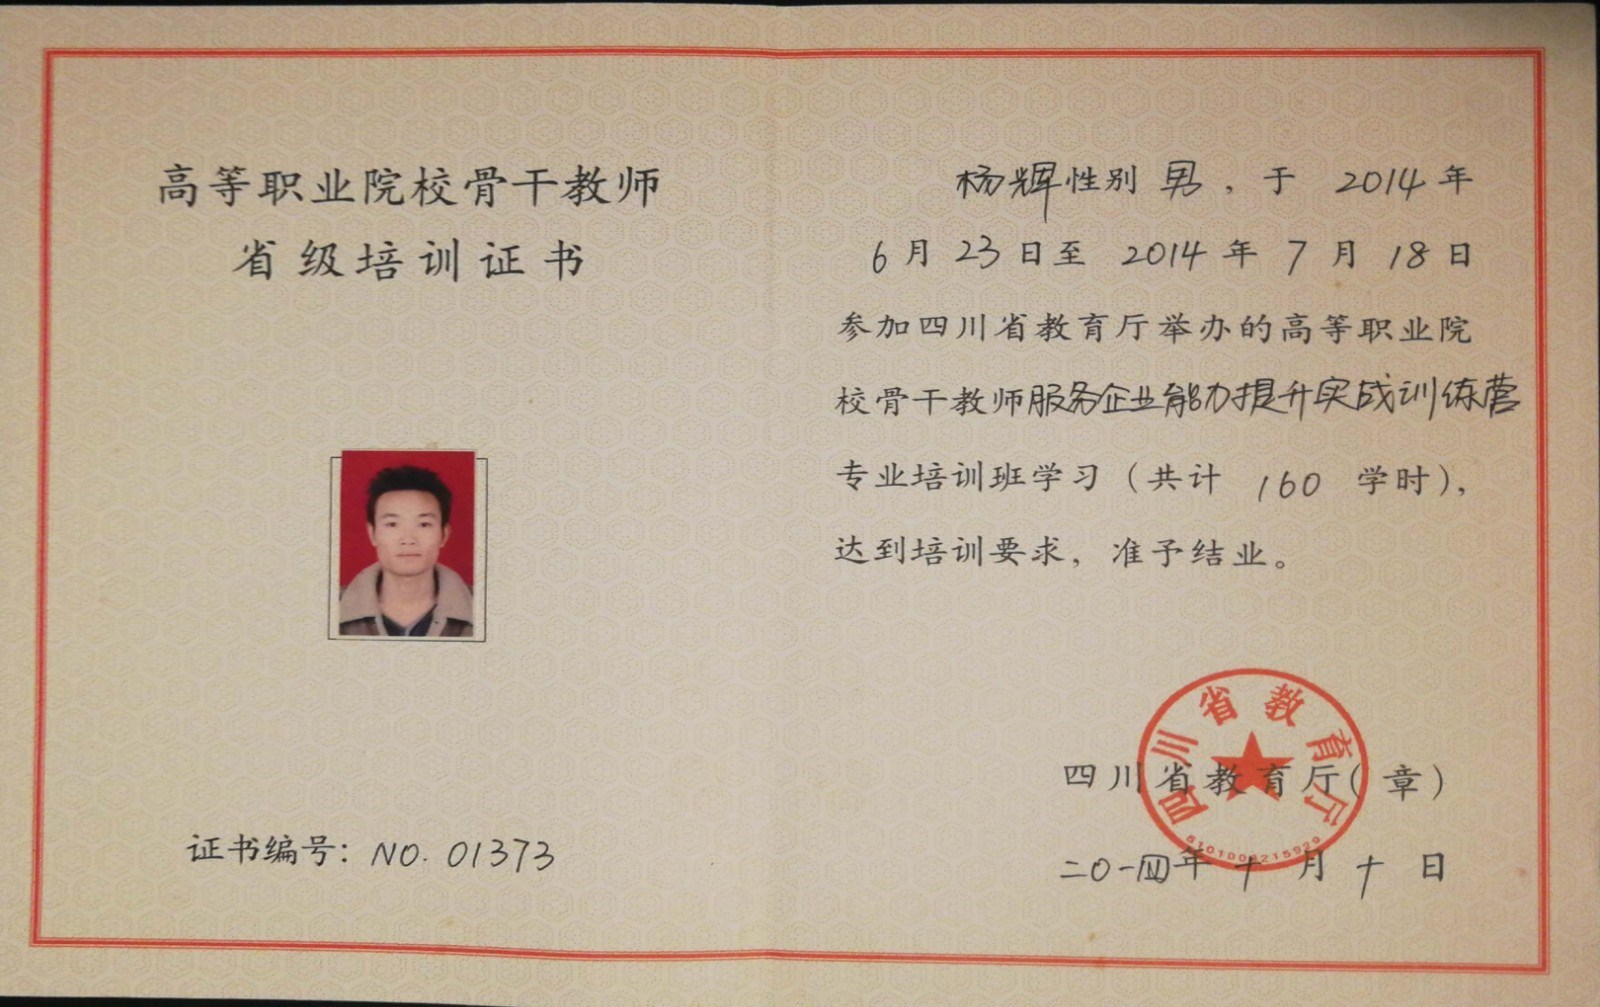 高等职业院校骨干教师
省级培训证书
证书编号：NO. 01373
杨辉性别 男，于 2014年
6月23日至 2014年7月18日
参加四川省教育厅举办的高等职业院
校骨干教师服务企业能力提升实战训练营
专业培训班学习（共计 160 学时），
达到培训要求，准予结业。
四川省教育厅（章）
二〇一四年十月十日
四川省教育厅